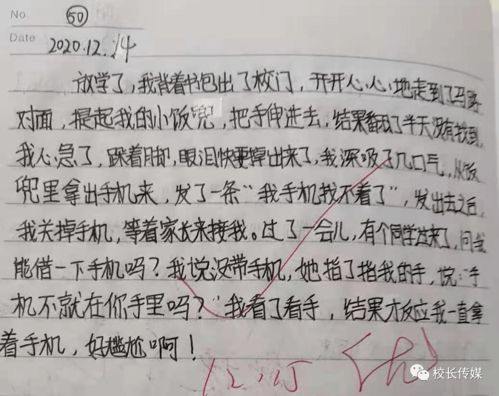 No 50
Date 2020.12.14
放学了，我背着书包出了校门，开开心心地走到了马路
对面，提起我的小饭兜，把手伸进去，结果翻了半天没有找到，
我心急了，跺着脚，眼泪快要掉出来了，我深吸了几口气，从饭
兜里拿出手机来，发了一条“我手机找不着了”，发出去之后，
我关掉手机，等着家长来接我。过了一会儿，有个同学过来了，问我
能借一下手机吗？我说没带手机，她指了指我的手，说：“手
机不就在你手里吗？”我看了看手，结果才反应我一直拿
着手机，好尴尬啊！
12.15
校长传媒